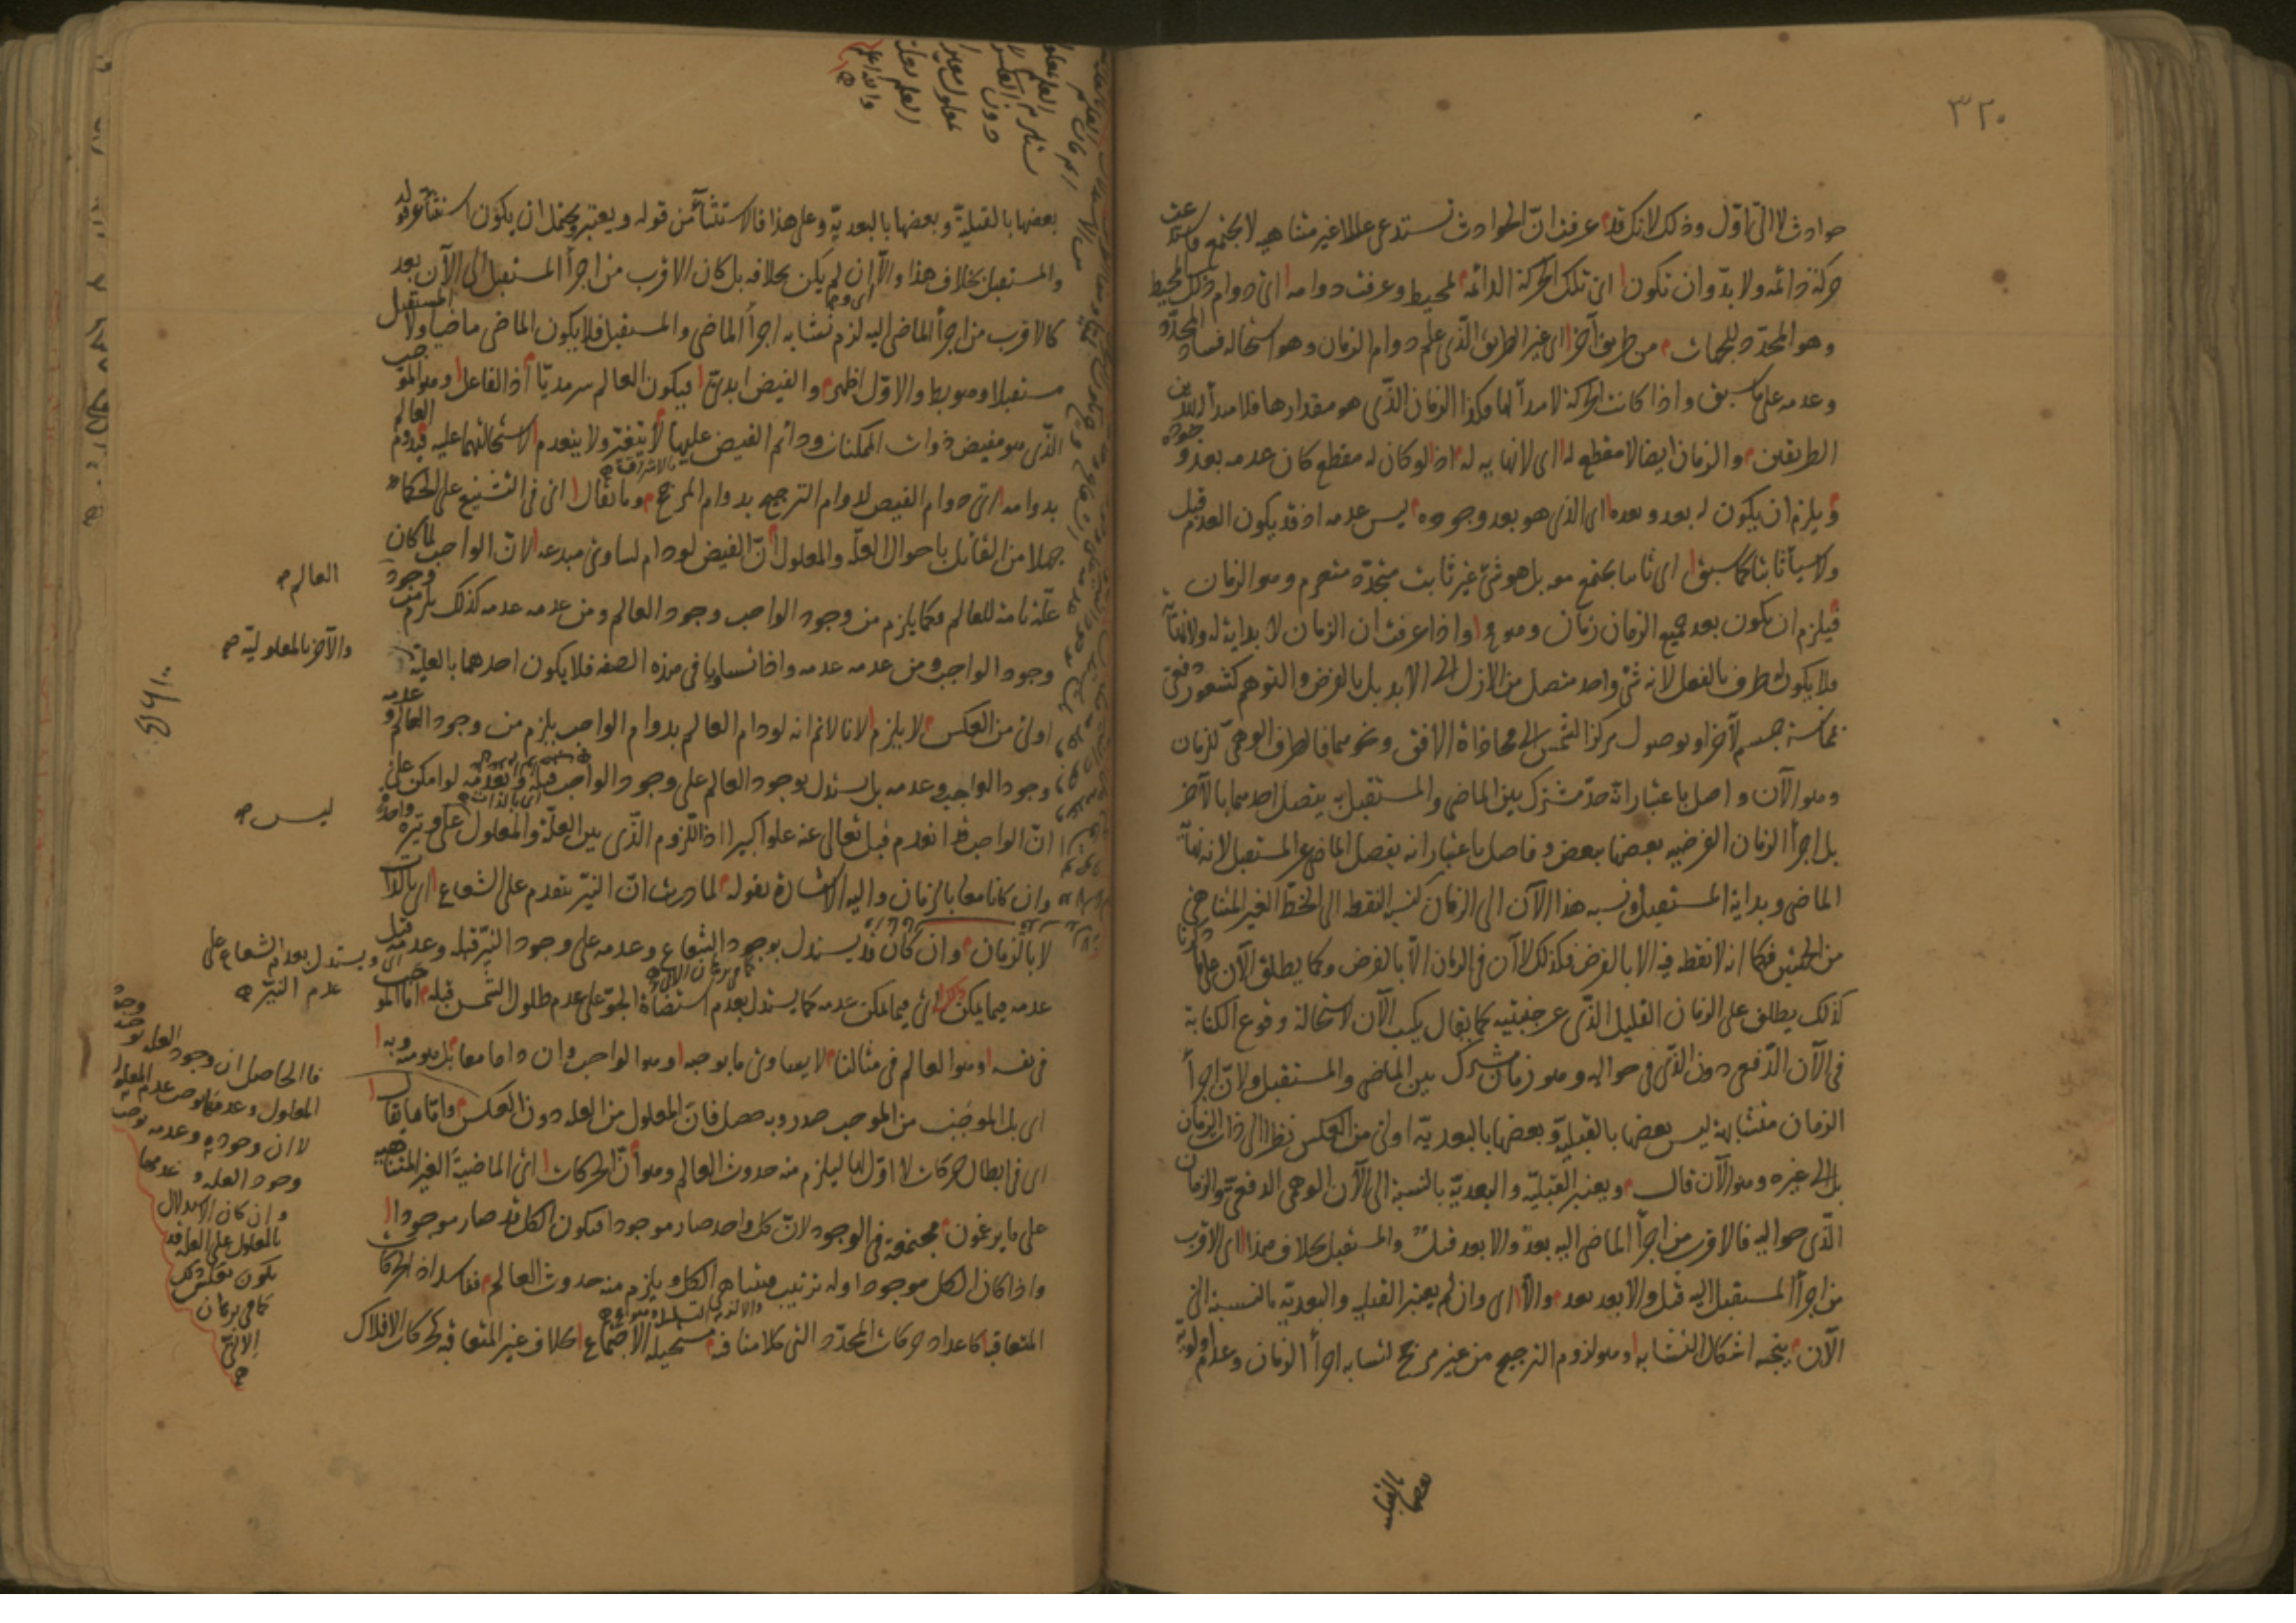 ٣٢٠
حوادث لا الى اول وذلك لانك قد عرفت ان الحوادث تستدعى عللا غير متناهية لا يجتمع
حركة دائمة ولا بد وان تكون اى تلك الحركة الدائمة لمحيط وعرفت دوامه اى دوام ذلك المحيط
وهو المحدد للجهات من طريق آخر اى غير الطريق الذى علم دوام الزمان وهو استحالة فساد المحدد
وعدمه على ما سبق واذا كانت الحركة لا مبدأ لها وكذا الزمان الذى هو مقدارها فلا مبدأ له
الطريقين والزمان ايضا لا مقطع له اى لا نهاية له اذ لو كان له مقطع كان عدمه بعد وجوده
فيلزم ان يكون له بعد وبعده اى الذى هو بعد وجوده ليس عدمه اذ قد يكون العدم قبل
ولا شيأ ثابتا كما سبق اى ثابتا يجتمع معه بل هو شئ غير ثابت متجدد متصرم وهو الزمان
فيلزم ان يكون بعد جميع الزمان زمان وهو مح واذا عرفت ان الزمان لا بداية له ولا نهاية
فلا يكون له طرف بالفعل لانه شئ واحد متصل من الازل الى الابد بل بالفرض والتوهم كشعور دفعى
بمماسة جسم لآخر او بوصول مركز الشمس الى محاذاة الافق ونحوهما فالطرف الوهمى للزمان
وهو الآن واصل باعتبار انه حد مشترك بين الماضى والمستقبل به يتصل احدهما بالآخر
بل اجزأ الزمان الفرضيه بعضها ببعض وفاصل باعتبار انه يفصل الماضى عن المستقبل لانه نهاية
الماضى وبداية المستقبل ونسبه هذا الآن الى الزمان كنسبة النقطه الى الخط الغير المتناهى
من الجنبين فكما انه لا نقطه فيه الا بالفرض فكذلك لا آن فى الزمان الا بالفرض وكما يطلق الآن على ما ذكرنا
كذلك يطلق على الزمان القليل الذى عن جنبتيه كما يقال يكتب الآن لاستحالة وقوع الكتابة
فى الآن الدفعى دون الذى فى حواليه وهو زمان مشترك بين الماضى والمستقبل ولان اجزأ
الزمان متشابهة ليس بعضها بالقبلية وبعضها بالبعدية اولى من العكس نظرا الى ذات الزمان
بل الى غيره وهو الآن قال ويعتبر القبليه والبعدية بالنسبة الى الآن الوهمى الدفعى والزمان
الذى حواليه فالاقرب من اجزأ الماضى اليه بعد والابعد قبل والمستقبل بخلاف هذا اى الاقرب
من اجزأ المستقبل اليه قبل والابعد بعد والا اى وان لم يعتبر القبليه والبعدية بالنسبة الى
الآن يتجه اشكال التشابه وهو لزوم الترجيح من غير مرجح لتشابه اجزأ الزمان وعدم اولوية
بعضها بالقبلية
بعضها بالقبلية وبعضها بالبعدية وعلى هذا فالاستثنأ من قوله ويعتبر ويحتمل ان يكون استثنأ عن قوله
والمستقبل بخلاف هذا والا اى وان لم يكن بخلافه بل كان الاقرب من اجزأ المستقبل الى الآن بعد
كالاقرب من اجزأ الماضى اليه لزم تشابه اجزأ الماضى والمستقبل فلا يكون الماضى ماضيا ولا المستقبل
مستقبلا وهو بط والاول اظهر والفيض ابدى فيكون العالم سرمديا اذ الفاعل وهو الموجب
الذى هو مفيض ذوات الممكنات ودائم الفيض عليها لا يتغير ولا ينعدم لاستحالتهما عليه فيدوم العالم
بدوامه اى دوام الفيض لدوام الترجيح بدوام المرجح وما يقال اى فى التشنيع على الحكمأ
جهلا من القائل باحوال العلة والمعلول ان الفيض لو دام لساوى مبدعه لان الواجب لما كان
علة تامة للعالم فكما يلزم من وجود الواجب وجود العالم ومن عدمه عدمه كذلك يلزم من وجود
العالم
وجود الواجب ومن عدمه عدمه واذا تساويا فى هذه الصفه فلا يكون احدهما بالعلية
والآخر بالمعلولية
اولى من العكس لا يلزم لانا لا نم انه لو دام العالم بدوام الواجب يلزم من وجود العالم وعدمه
وجود الواجب وعدمه بل يستدل بوجود العالم على وجود الواجب قبله وبعدمه لو امكن على
ليس
ان الواجب انعدم قبل تعالى عنه علوا كبيرا اذ اللزوم الذى بين العلة والمعلول على وتيرة واحدة
وان كانا معا بالزمان واليه الاشارة بقوله لما دريت ان النير يتقدم على الشعاع اى بالذات
لا بالزمان وان كان قد يستدل بوجود الشعاع وعدمه على وجود النير قبله وعدمه قبل
ويستدل بعدم الشعاع على
عدم النير
عدمه فيما يمكن اى فيما يمكن عدمه كما يستدل بعدم استضأة الجو على عدم طلوع الشمس قبله اما الموجب
فى نفسه وهو العالم فى مثالنا لا يساوى ما يوجبه وهو الواجب وان داما معا بل هو منه وبه
اى بل الموجب من الموجب صدر وبه حصل فان المعلول من العله دون العكس واما ما يقال
اى فى ابطال حركات لا اول لها ليلزم منه حدوث العالم وهو ان الحركات اى الماضية الغير المتناهيه
على ما يزعمون مجتمعة فى الوجود لان كل واحد صار موجودا فيكون الكل قد صار موجودا
واذا كان الكل موجودا وله ترتيب فيتناهى الكل ويلزم منه حدوث العالم فاسد اذ الحركات
المتعاقبة كاعداد حركات المحدد التى كلامنا فيه مستحيلة الاجتماع بخلاف غير المتعاقبه كحركات الافلاك
فالحاصل ان وجود العله يوجب وجود
المعلول وعدمها يوجب عدم المعلول
لا ان وجوده وعدمه يوجب
وجود العله وعدمها
وان كان الاستدلال
بالمعلول على العله قد
يكون بعكس ذلك
كما فى برهان
الانى